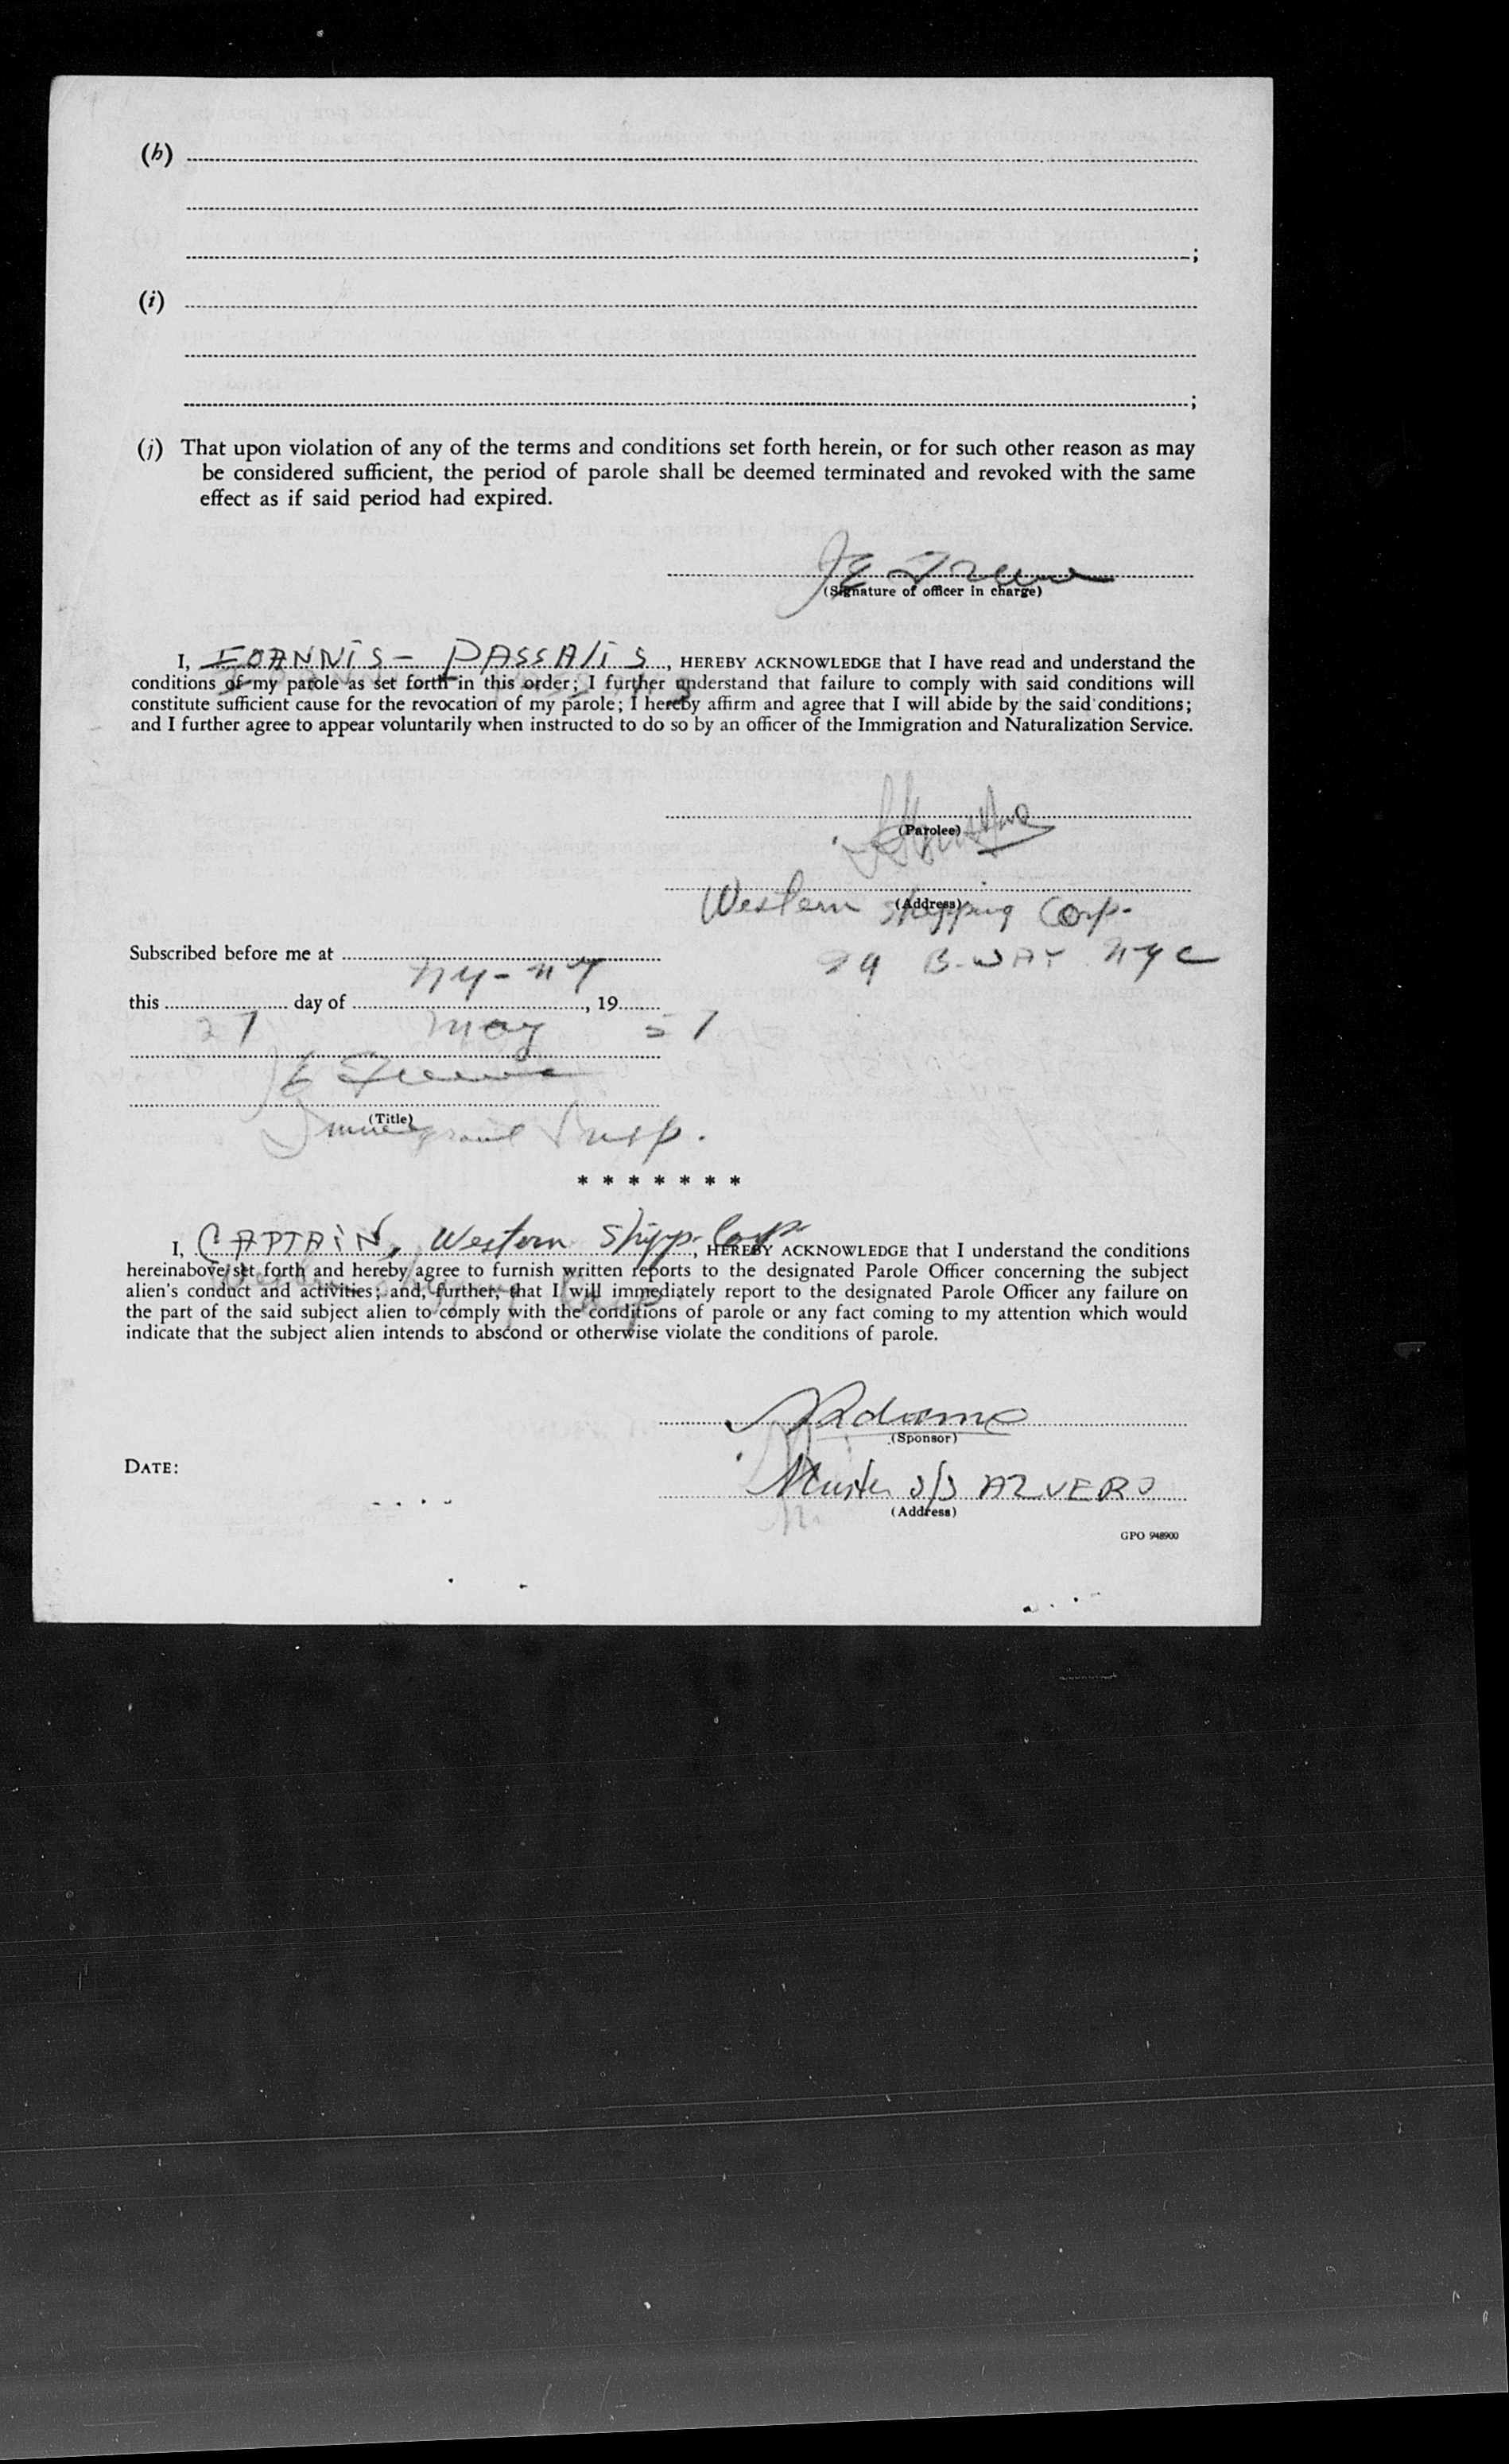 (h)
;
(i)
;
(j) That upon violation of any of the terms and conditions set forth herein, or for such other reason as may
be considered sufficient, the period of parole shall be deemed terminated and revoked with the same
effect as if said period had expired.
(Signature of officer in charge)
I, IOANNIS - PASSALIS, HEREBY ACKNOWLEDGE that I have read and understand the
conditions of my parole as set forth in this order; I further understand that failure to comply with said conditions will
constitute sufficient cause for the revocation of my parole; I hereby affirm and agree that I will abide by the said conditions;
and I further agree to appear voluntarily when instructed to do so by an officer of the Immigration and Naturalization Service.
(Parolee)
(Address)
Western Shipping Corp.
B-WAY NYC
Subscribed before me at
NY - NY
this day of , 19
27 May 57
(Title)
Immigrant Insp.
* * * * * * *
I, CAPTAIN, Western Shipp. Corp, HEREBY ACKNOWLEDGE that I understand the conditions
hereinabove set forth and hereby agree to furnish written reports to the designated Parole Officer concerning the subject
alien's conduct and activities; and, further, that I will immediately report to the designated Parole Officer any failure on
the part of the said subject alien to comply with the conditions of parole or any fact coming to my attention which would
indicate that the subject alien intends to abscond or otherwise violate the conditions of parole.
(Sponsor)
DATE:
Master S/S ALVERO
(Address)
GPO 948900